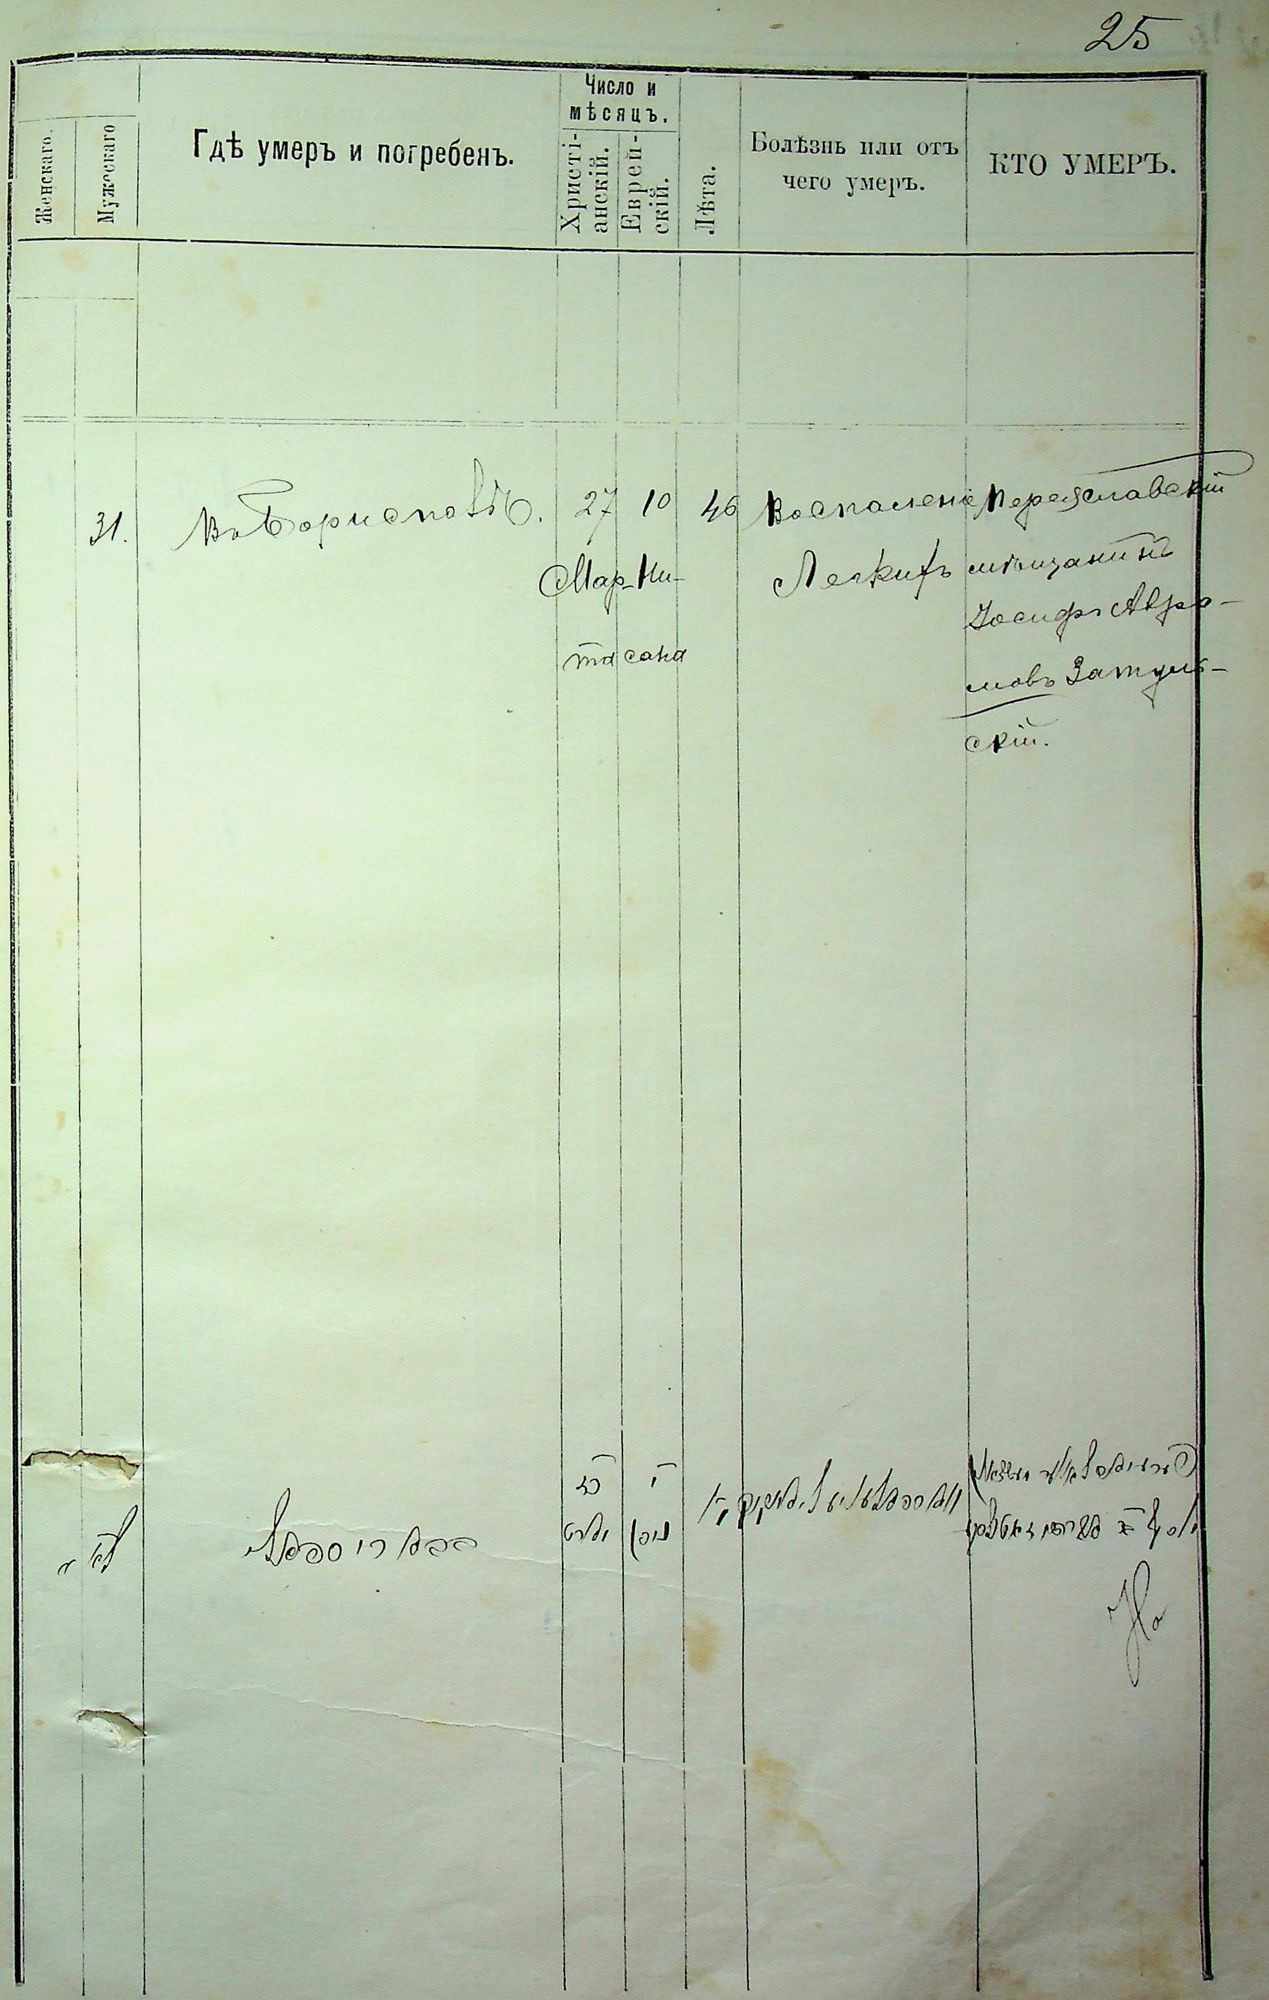 25
Женскаго.
Мужескаго
Гдѣ умеръ и погребенъ.
Число и
мѣсяцъ.
Христі-
анскій.
Еврей-
скій.
Лѣта.
Болѣзнь или отъ
чего умеръ.
КТО УМЕРЪ.
31.
Въ Борисполѣ.
27
Мар-
та
10
Ни-
сана
46
Воспаленіе
Легкихъ
Переяславскій
мѣщанинъ
Іосифъ Авра-
мовъ Затуль-
скій.
לא
כז
מארט
י
ניסן